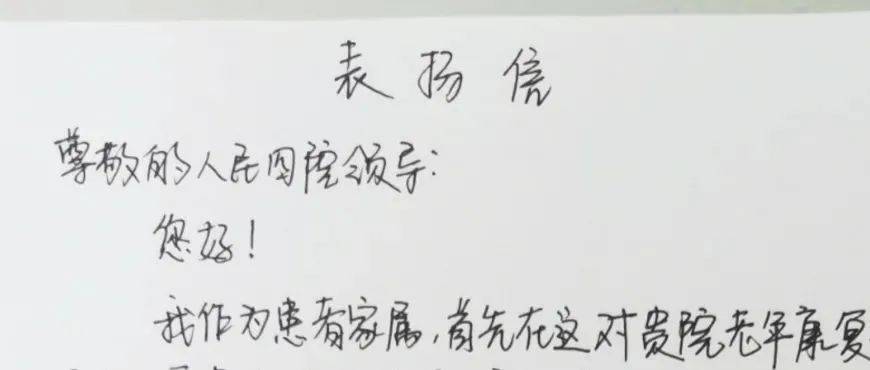 表扬信
尊敬的人民医院领导:
您好!
我作为患者家属,首先在这对贵院老年康复